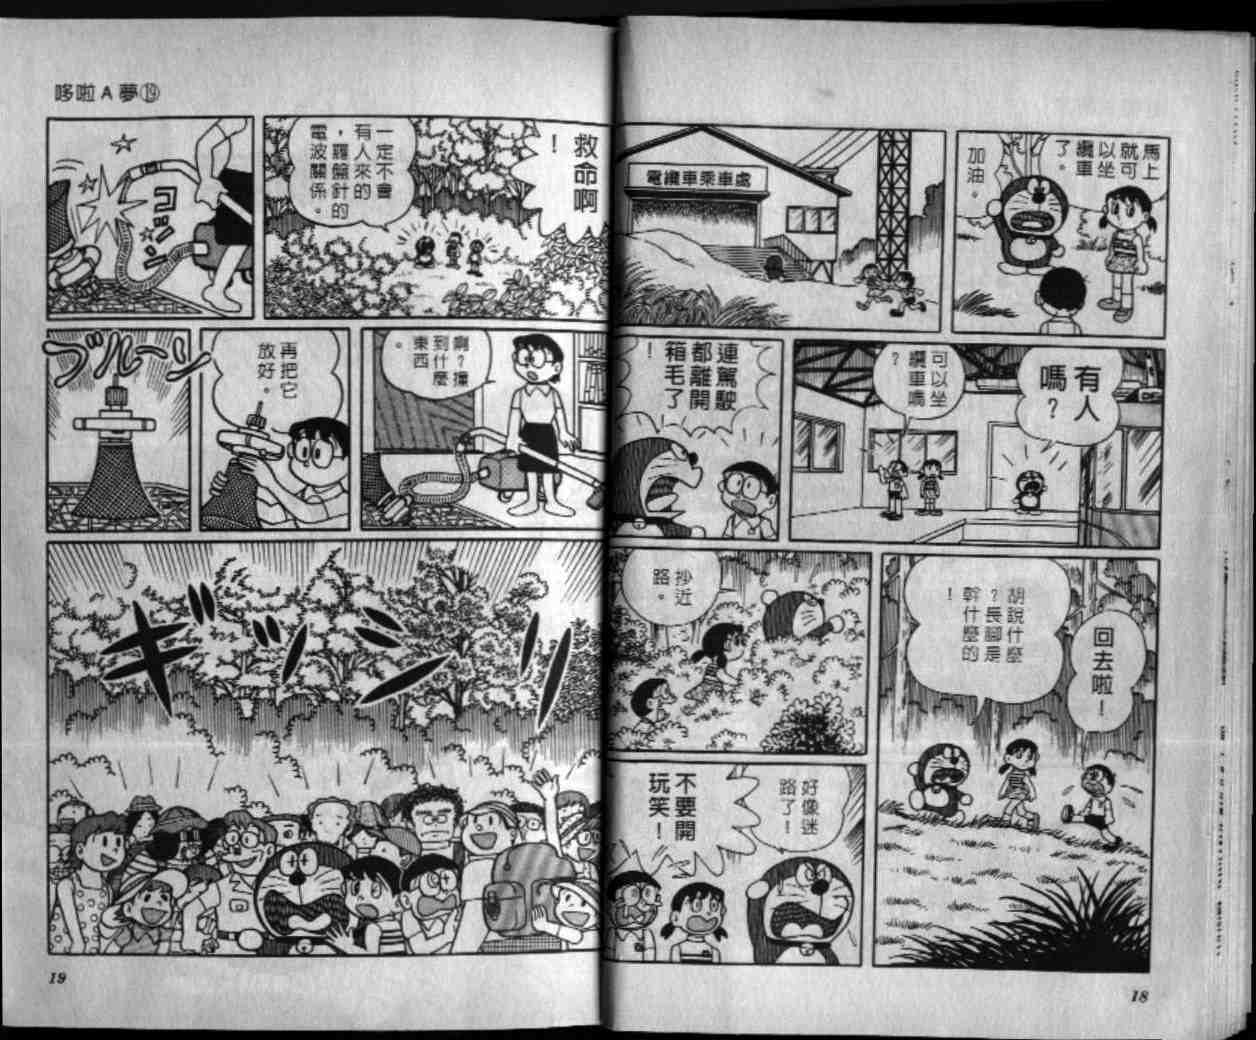 馬上
就可
以坐
纜車
了。
加油。
電纜車乘車處
有人
嗎?
可以坐
纜車嗎
?
連駕駛
都離開
箱毛了
!
回去啦!
胡說什麼
?長腳是
幹什麼的
!
抄近
路。
好像迷
路了!
不要開
玩笑!
18
哆啦A夢⑲
救命啊
!
一定不會
有人來的
,羅盤針的
電波關係。
ゴツン
啊?撞
到什麼
東西
。
再把它
放好。
ブルーン
ギューン
19